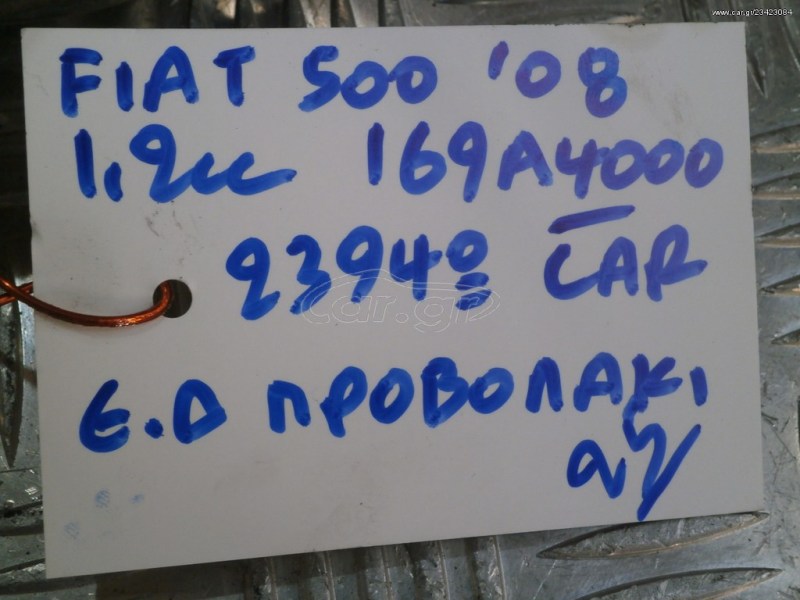 www.car.gr/23423084
FIAT 500 '08
1,2cc 169A4000
23940 CAR
car.gr
Ε.Δ ΠΡΟΒΟΛΑΚΙ